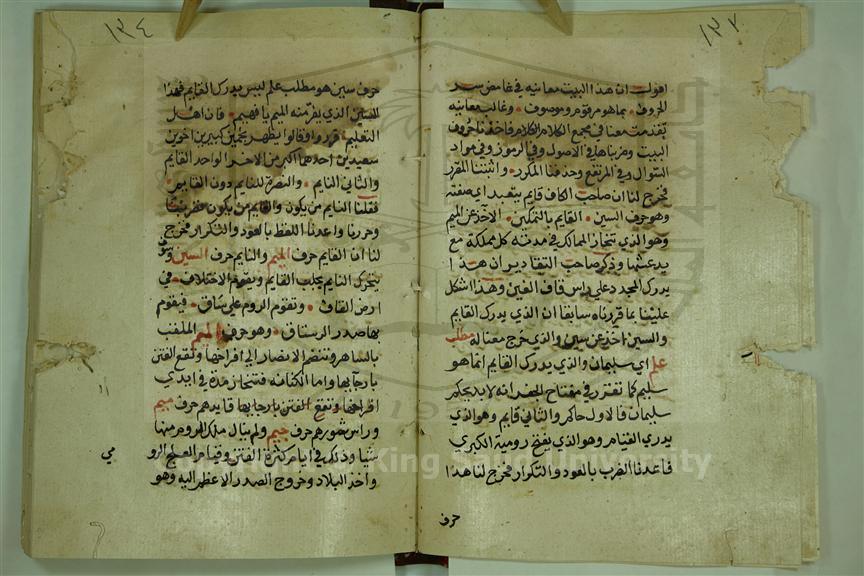 ١٣٣
اقول ان هذا البيت معانيه في غامض سر
الحروف بما هو مرقوم وموصوف وغالب معانيه
تقدمت معنا في مجمع الكلام الكلام فاخذنا حروف
البيت وضربناها في الاصول وفي الرموز وفي مواد
السوال وفي المرتفع وحذفنا المكرر واثبتنا المقرر
فخرج لنا ان صاحب الكاف قايم بتعبد اي صفته
وهو حرف السين القايم بالتمكين الآخذ عن الميم
وهو الذي تنحاز الممالك في مدته كل مملكة مع
يدعثها وذكر صاحب التقادير ان هذا
يدرك المجدد على راس قاف الغين وهذا اشكل
علينا بما قررناه سابقا ان الذي يدرك القايم
والسين اخذ عن سين والذي خرج معنا له مطلب
علم اي سليمان والذي يدرك القايم انما هو
سليم كما تقرر في مفتاح الجفر انه لابد يحكم
سليمان فالاول حاكم والثاني قايم وهو الذي
يدري القيام وهو الذي يفتح رومية الكبرى
فاعدنا الضرب بالعود والتكرار فخرج لنا هذا
حرف
١٣٤
حرف سين هو مطلب علم ليس يدرك القايم فهذا
السين الذي يفر منه الميم يا فهيم فان اهل
التعليم قرروا وقالوا يظهر نجمين كبيرين اخرين
سعيدين احدهما اكبر من الاخر الواحد القايم
والثاني النايم والنصرة للنايم دون القايم
فقلنا النايم من يكون والقايم من يكون فضربنا
وحررنا واعدنا اللفظ بالعود والتكرار فخرج
لنا ان القايم حرف الميم والنايم حرف السين وسوف
يتحرك النايم بجلب القايم ويقوم الاختلاف في
ارض القاف وتقوم الروم على ساق فيقوم
بها صدر الرستاق وهو حرف الميم الملقب
بالساهر وتنضم الانصار الى افراخها وتقع الفتن
بارجآبها واما الكنانه فتنحاز مدة في ايدي
افراخها وتقع الفتن بارجابها قايدهم حرف ميم
وراس شورهم حرف جيم ولم ينال ملك الروم منها
شيا وذلك في ايام كثرة الفتن وقيام العلج الرو
واخذ البلاد وخروج الصدر الاعظم اليه وهو
مي
King Saud University